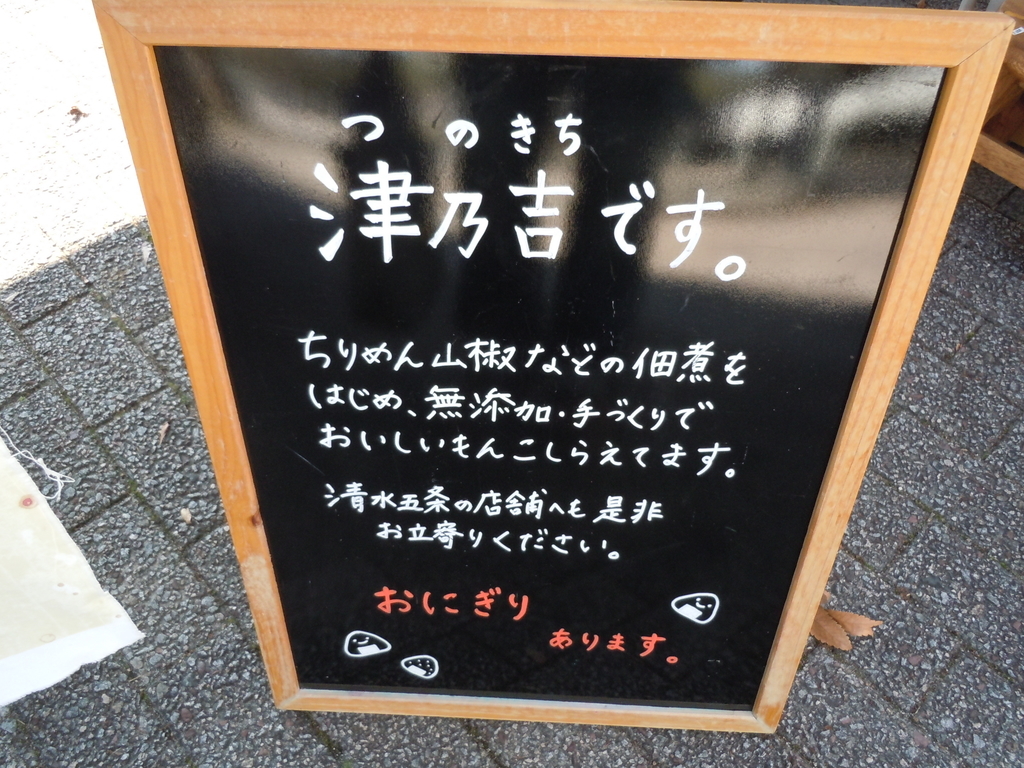 つのきち
津乃吉です。
ちりめん山椒などの佃煮を
はじめ、無添加・手づくりで
おいしいもんこしらえてます。
清水五条の店舗へも是非
お立寄りください。
おにぎり
あります。